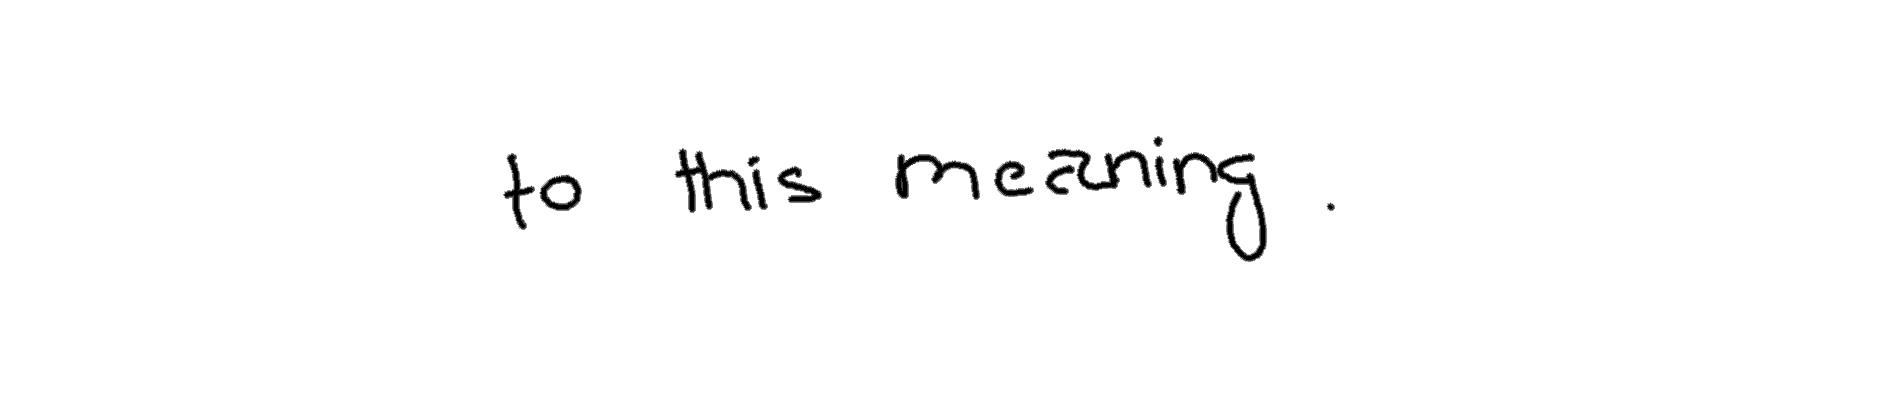 to this meaning.